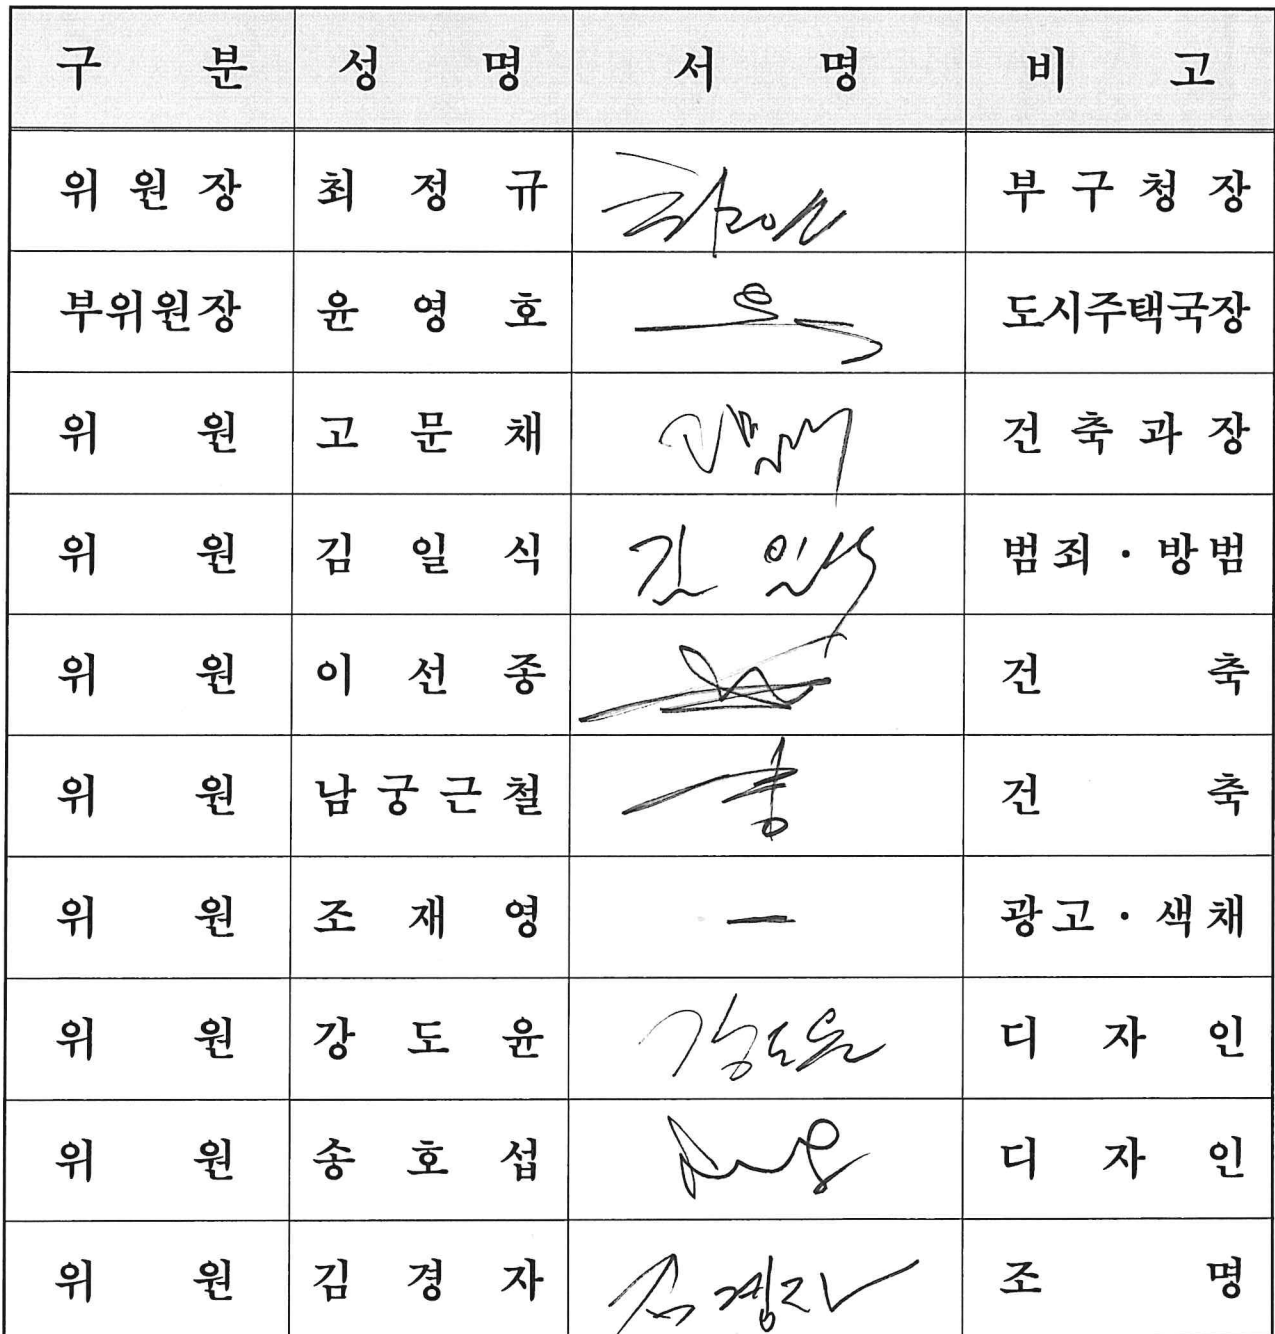 구 분 성 명 서 명 비 고
위 원 장 최 정 규 부 구 청 장
부위원장 윤 영 호 도시주택국장
위 원 고 문 채 건 축 과 장
위 원 김 일 식 김 일식 범죄 · 방범
위 원 이 선 종 건 축
위 원 남 궁 근 철 건 축
위 원 조 재 영 — 광고 · 색채
위 원 강 도 윤 강도윤 디 자 인
위 원 송 호 섭 디 자 인
위 원 김 경 자 김경자 조 명